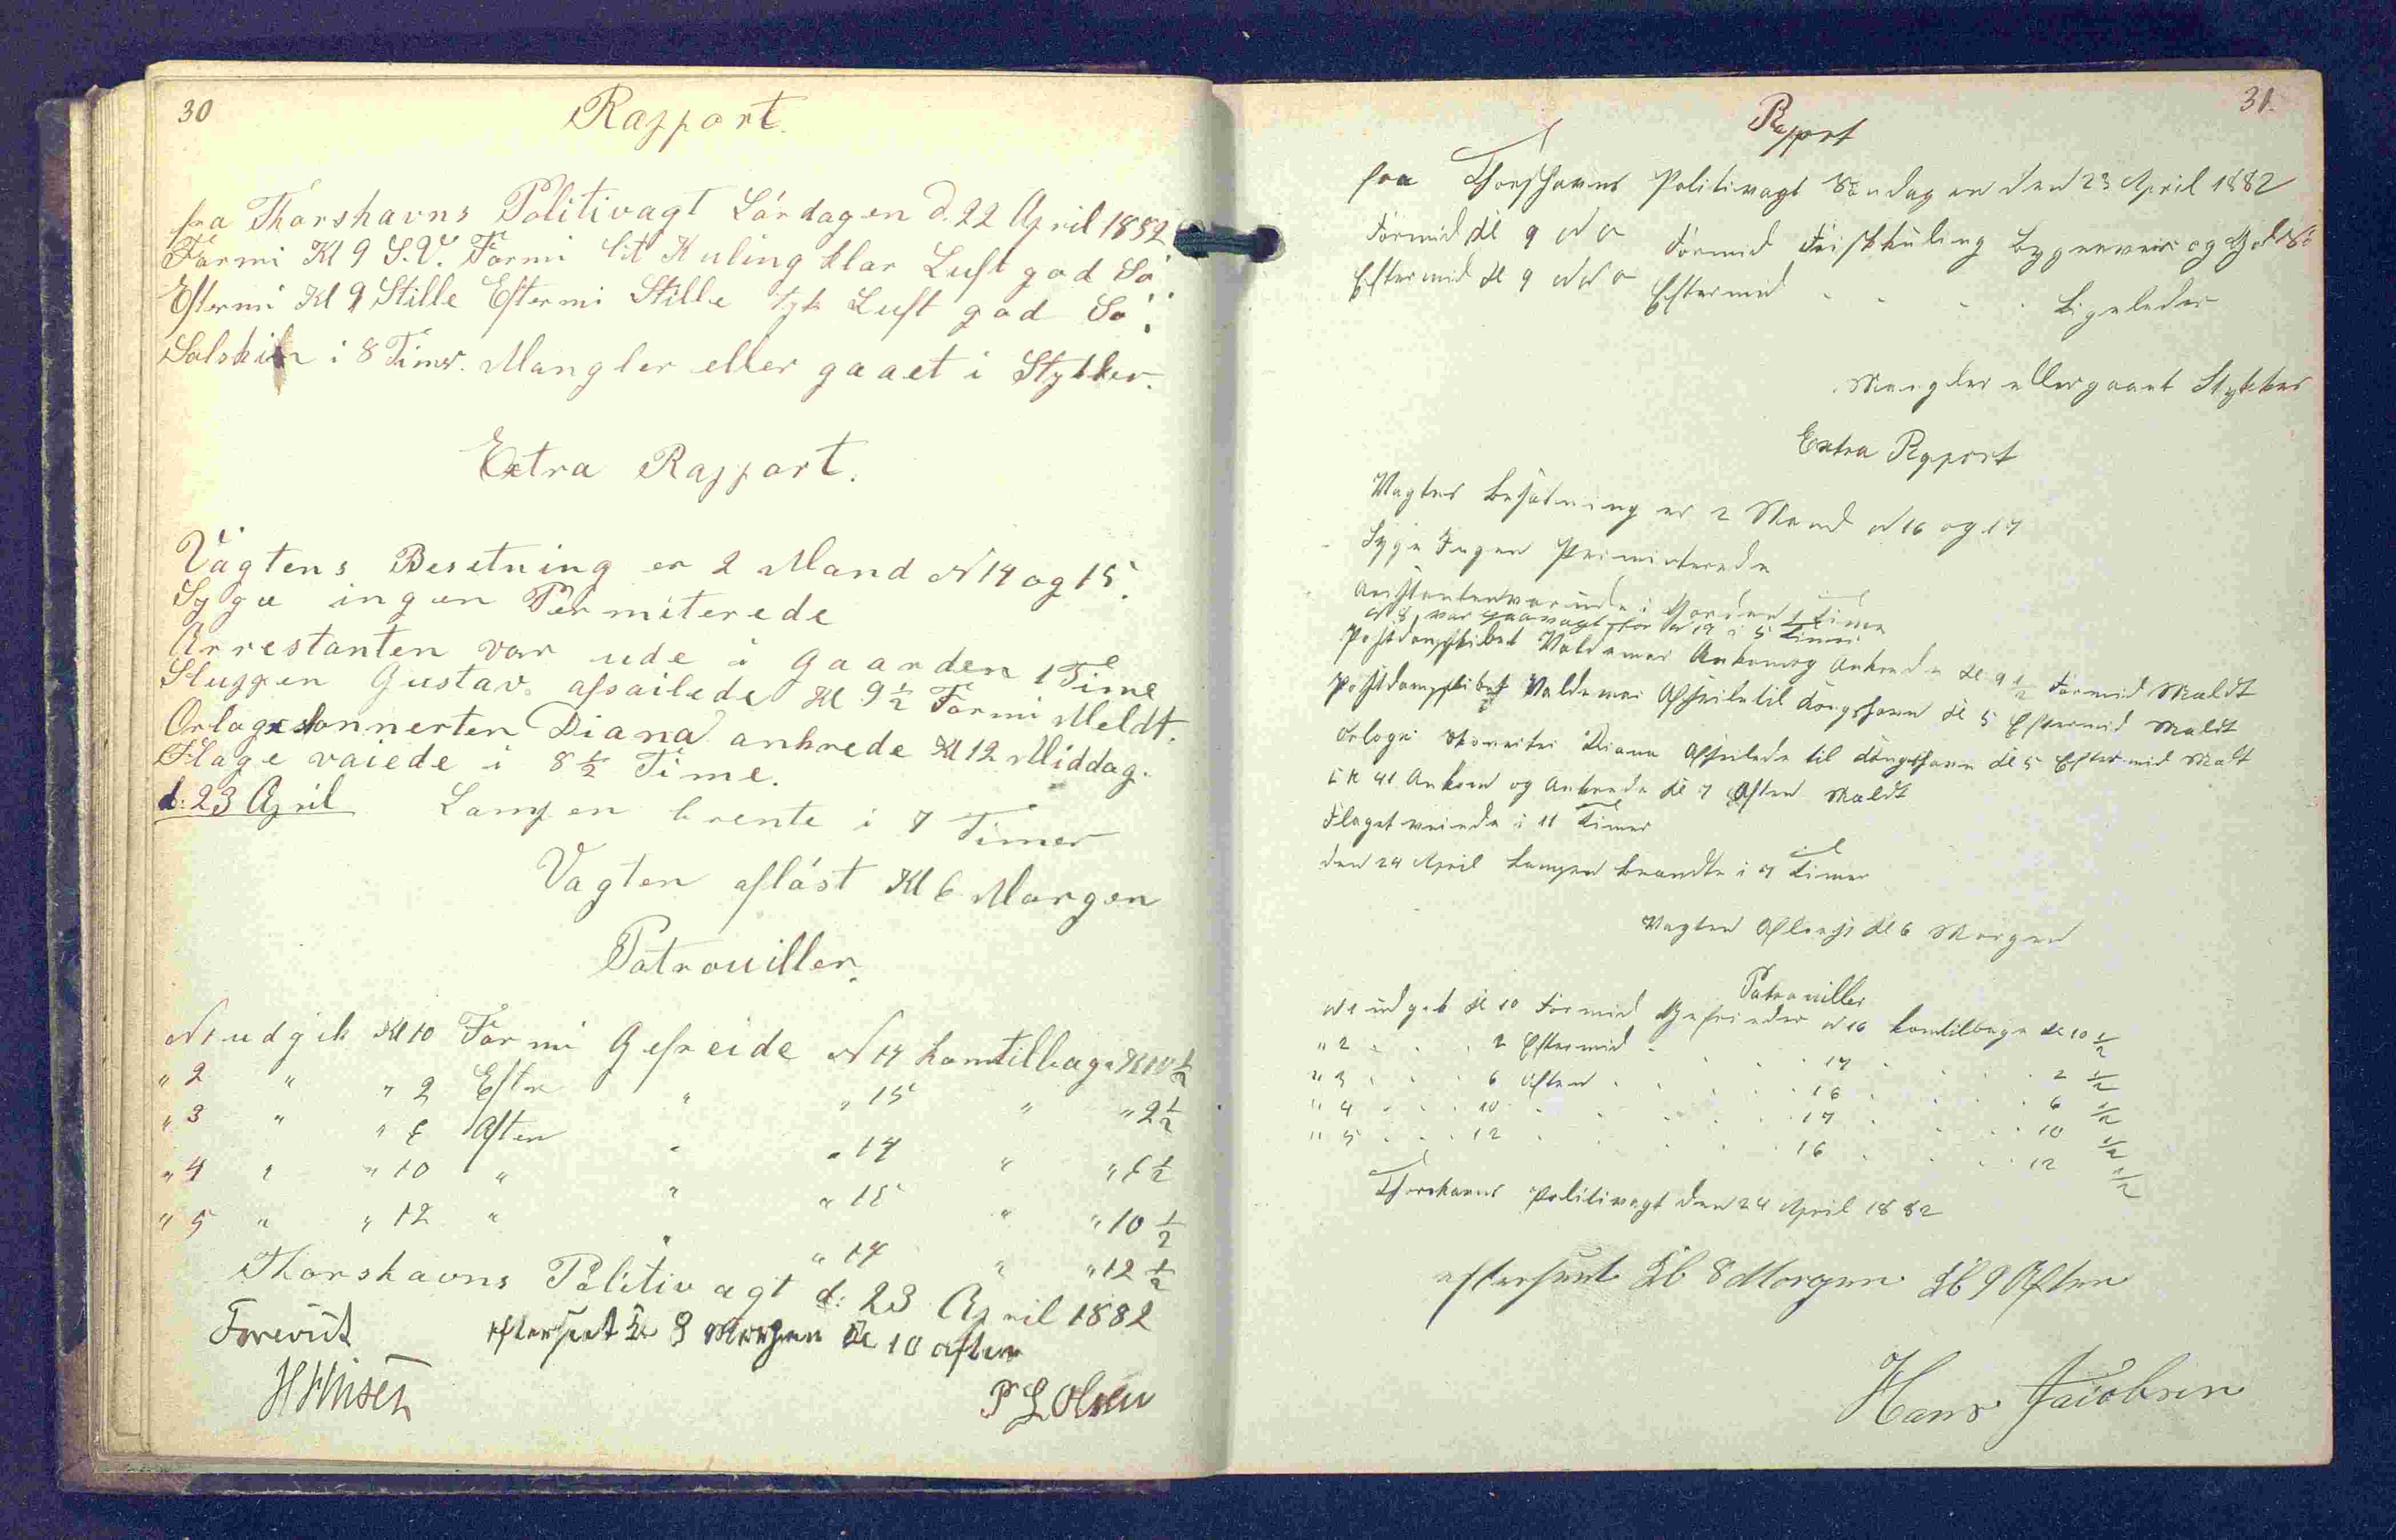 30
Rapport.
fra Thorshavns Politivagt Lördagen d. 22 April 1882
Formi Kl 9 S.V. Formi lit Kuling klar Luft god Sö
Eftermi Kl 9 Stille Eftermi Stille tyk Luft god Sö.
Solskin i 8 Timer. Mangler eller gaaet i Stykker.
Extra Rapport.
Vagtens Besetning er 2 Mand N 14 og 15.
Syge ingen Permiterede
Arrestanten var ude i Gaarden 1 Time
Sluppen Gustav afsailede Kl 9 1/2 Formi Meldt.
Orlogskonnerten Diana ankrede Kl 12 Middag.
Flage vaiede i 8 1/2 Time.
d: 23 April Lampen brente i 7 Timer
Vagten aflöst Kl 6 Morgen
Patrouiller.
N 1 udgik Kl 10 Formi Gefreide N 14 kom tilbage Kl 10 1/2
" 2 " " 2 Efter " " 15 " " 2 1/2
" 3 " " 6 Aften " " 14 " " 6 1/2
" 4 " " 10 " " " 15 " " 10 1/2
" 5 " " 12 " " " 14 " " 12 1/2
Thorshavns Politivagt d: 23 April 1882
Forevist efterseet Kl 8 Morgen Kl 10 aften
P L Olsen
31.
Rapport
fra Thorshavns Politivagt Söndagen den 23 April 1882
Formid Kl 9 N O Formid Friskkuling Bygeveir og God Sö
Eftermid Kl 9 N N O Eftermid . . . . Ligeledes
Mangler eller gaaet Stykker
Extra Rapport
Vagtens Besætning er 2 Mand N 16 og 17
Syge Ingen Perimiterede
Arrstanten var ude i Gorden 1 Time
N 8, var paa vagt for N 17 i 5 Timer
Postdampskibet Valdemar Ankom og Ankrede Kl 9 1/2 Formid Mældt
Postdampskibet Valdemar Afseilte til Kongshavn Kl 5 Eftermid Mældt
Orlogs Skonerten Diana Afseilede til Kongshavn Kl 5 Eftermid Mælt
Ankom og Ankrede Kl 7 Aften Mældt
Flaget veiede i 11 Timer
den 24 April Lampen Brandte i 7 Timer
Vagten Aflöst Kl 6 Morgen
Patrouiller
N 1 udgik Kl 10 Formid Gefrieder N 16 kom tilbage Kl 10 1/2
" 2 . . . 2 Eftermid . . . 17 . . . 2 1/2
" 3 . . . 6 Aften . . . 16 . . . 6 1/2
" 4 . . . 10 . . . 17 . . . 10 1/2
" 5 . . . 12 . . . 16 . . . 12 1/2
Thorshavns Politivagt den 24 April 1882
efterseet Kl 8 Morgen Kl 9 Aften
Hans Jacobsen